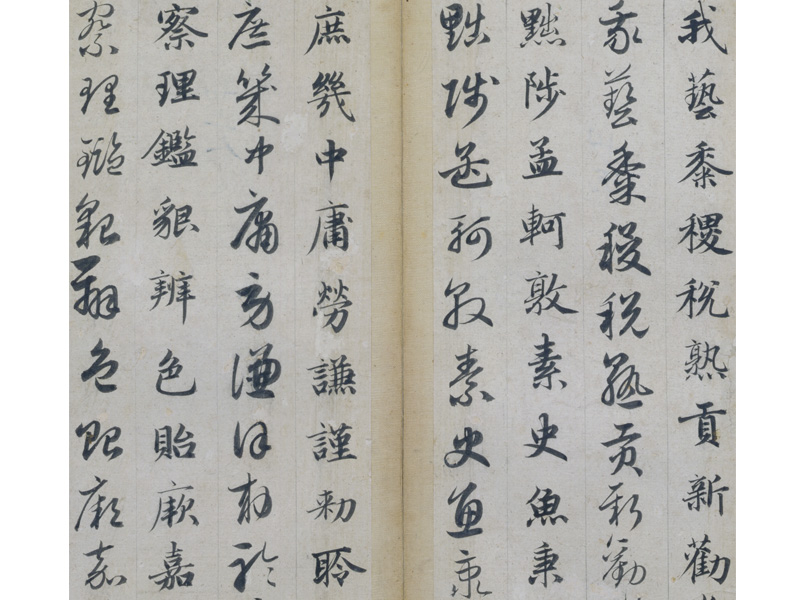 我藝黍稷稅熟貢新勸
我藝黍稷稅熟貢新勸
黜陟孟軻敦素史魚秉
黜陟孟軻敦素史魚秉
庶幾中庸勞謙謹勅聆
庶幾中庸勞謙謹勅聆
察理鑑貌辨色貽厥嘉
察理鑑貌辨色貽厥嘉